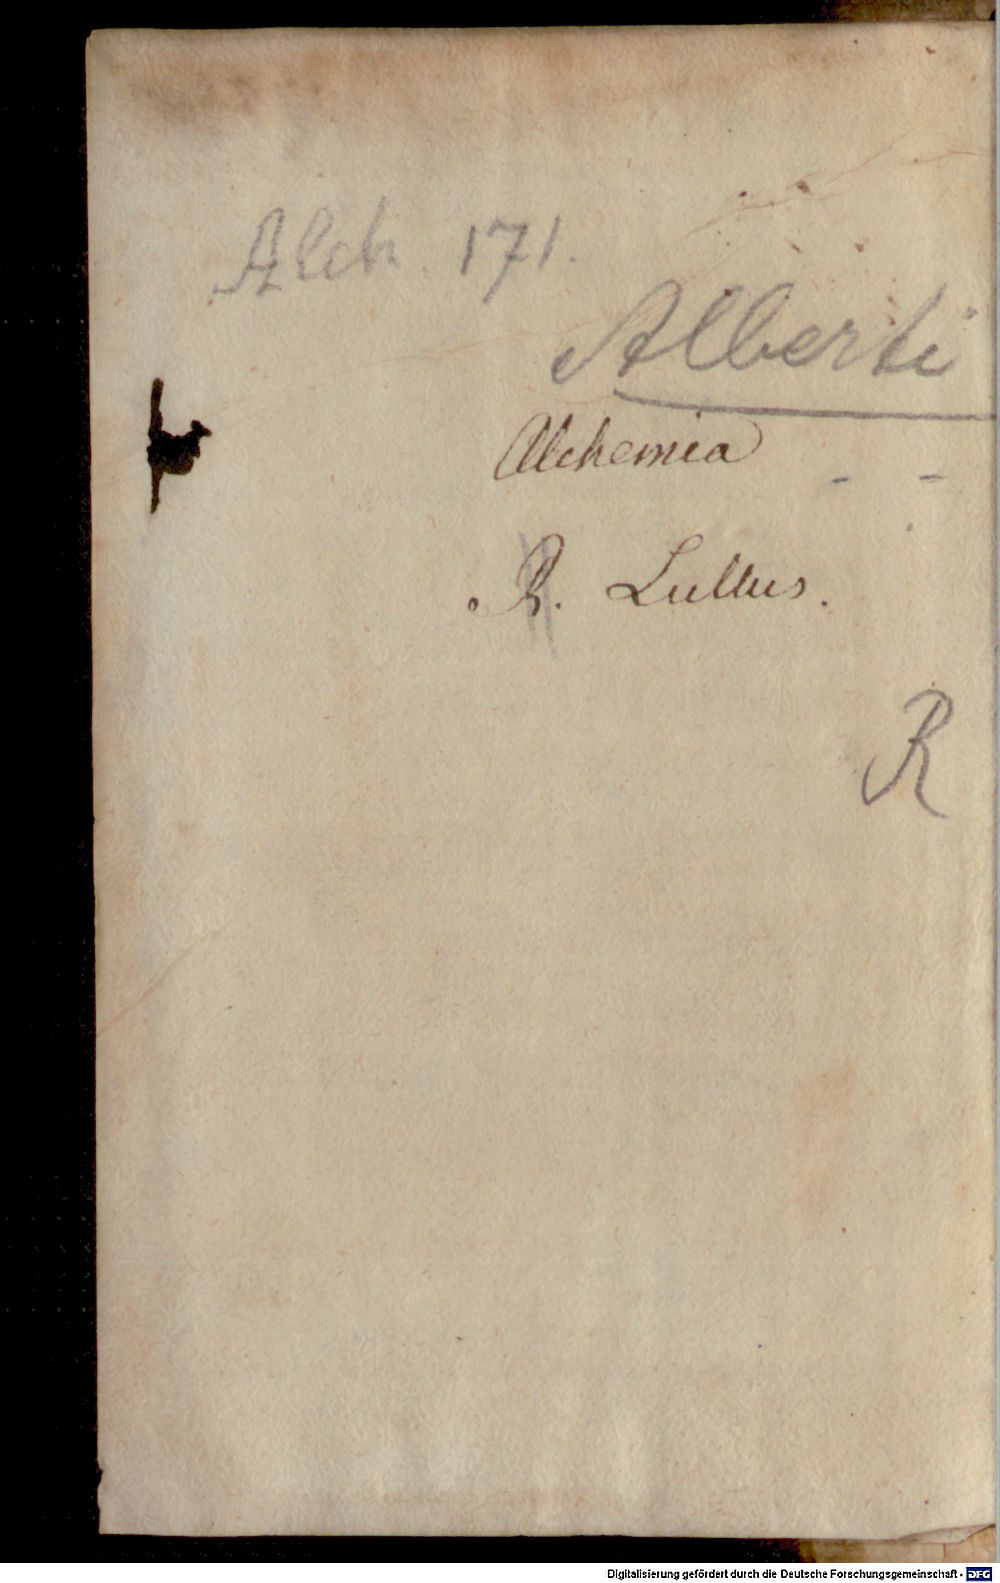 Alch. 171.
Alberti
Alchemia - -
R. Lullus.
R
Digitalisierung gefördert durch die Deutsche Forschungsgemeinschaft - DFG